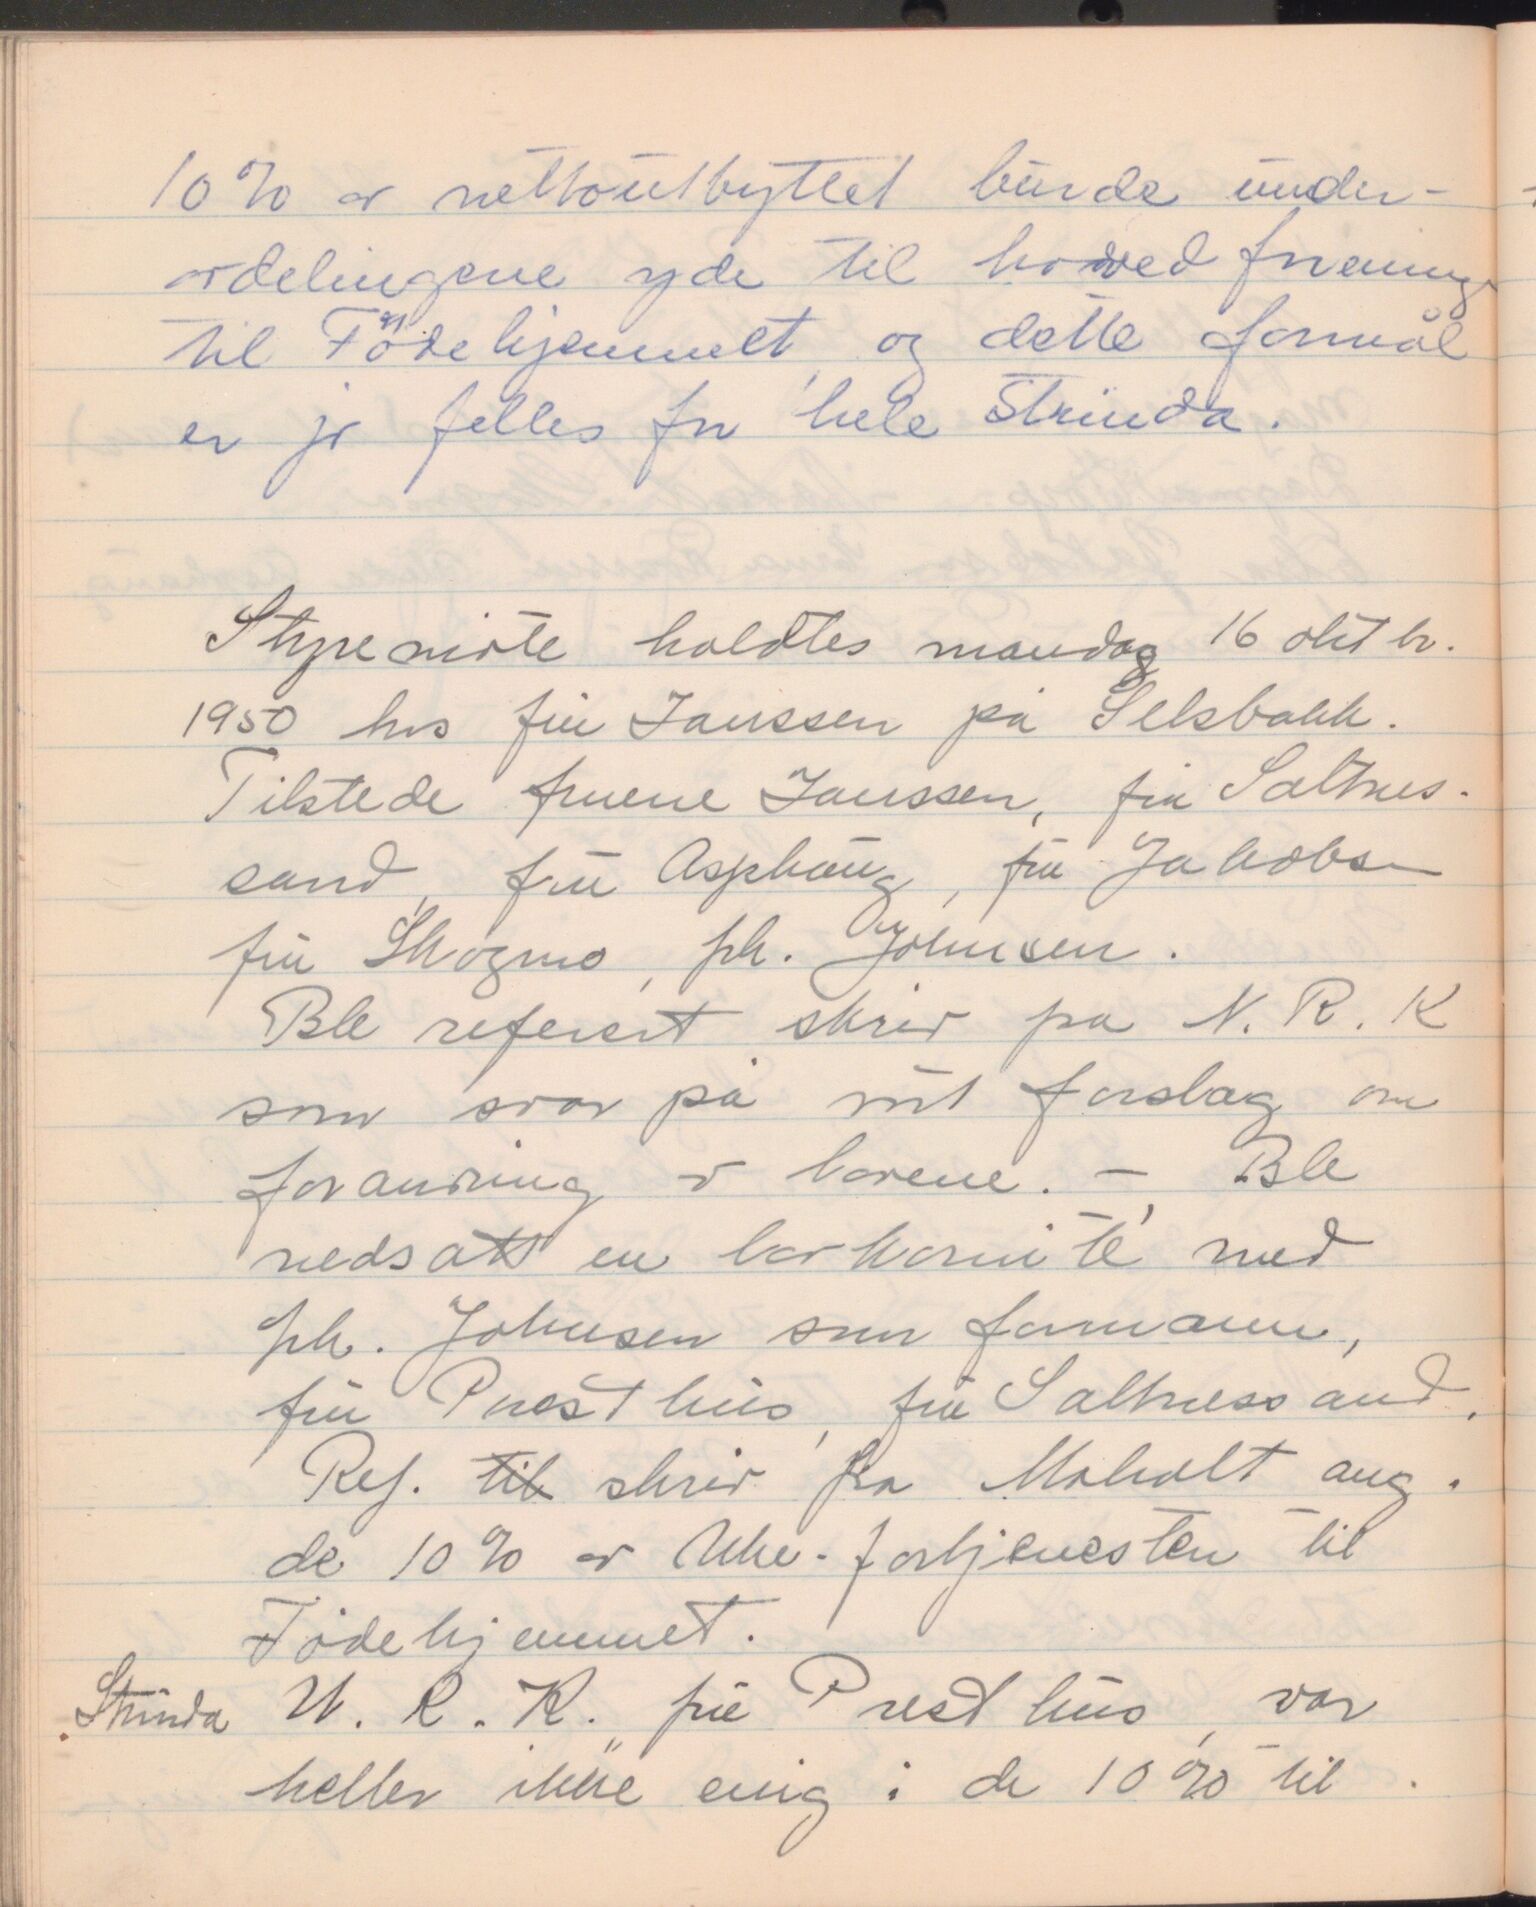 10% av nettoutbyttet burde under-
avdelingene yde til hovedforening
til Fødehjemmet, og dette formål
er jo felles for hele Strinda.
Styremøte holdtes mandag 16 oktbr.
1950 hos fru Janssen på Selsbakk.
Tilstede fruene Janssen, fru Saltnes-
sand, fru Asphaug, fru Jakobsen
fru Skogmo, frk. Johnsen.
Ble referert skriv fra N. R. K
som svar på vårt forslag om
forandring av lovene. – Ble
nedsatt en lovkomite med
frk. Johnsen som formann,
fru Presthus, fru Saltnessand.
Ref. til skriv fra Moholt ang.
de 10% av Uke-fortjenesten til
Fødehjemmet.
Strinda U. R. K. fru Presthus, var
heller ikke enig i de 10% til